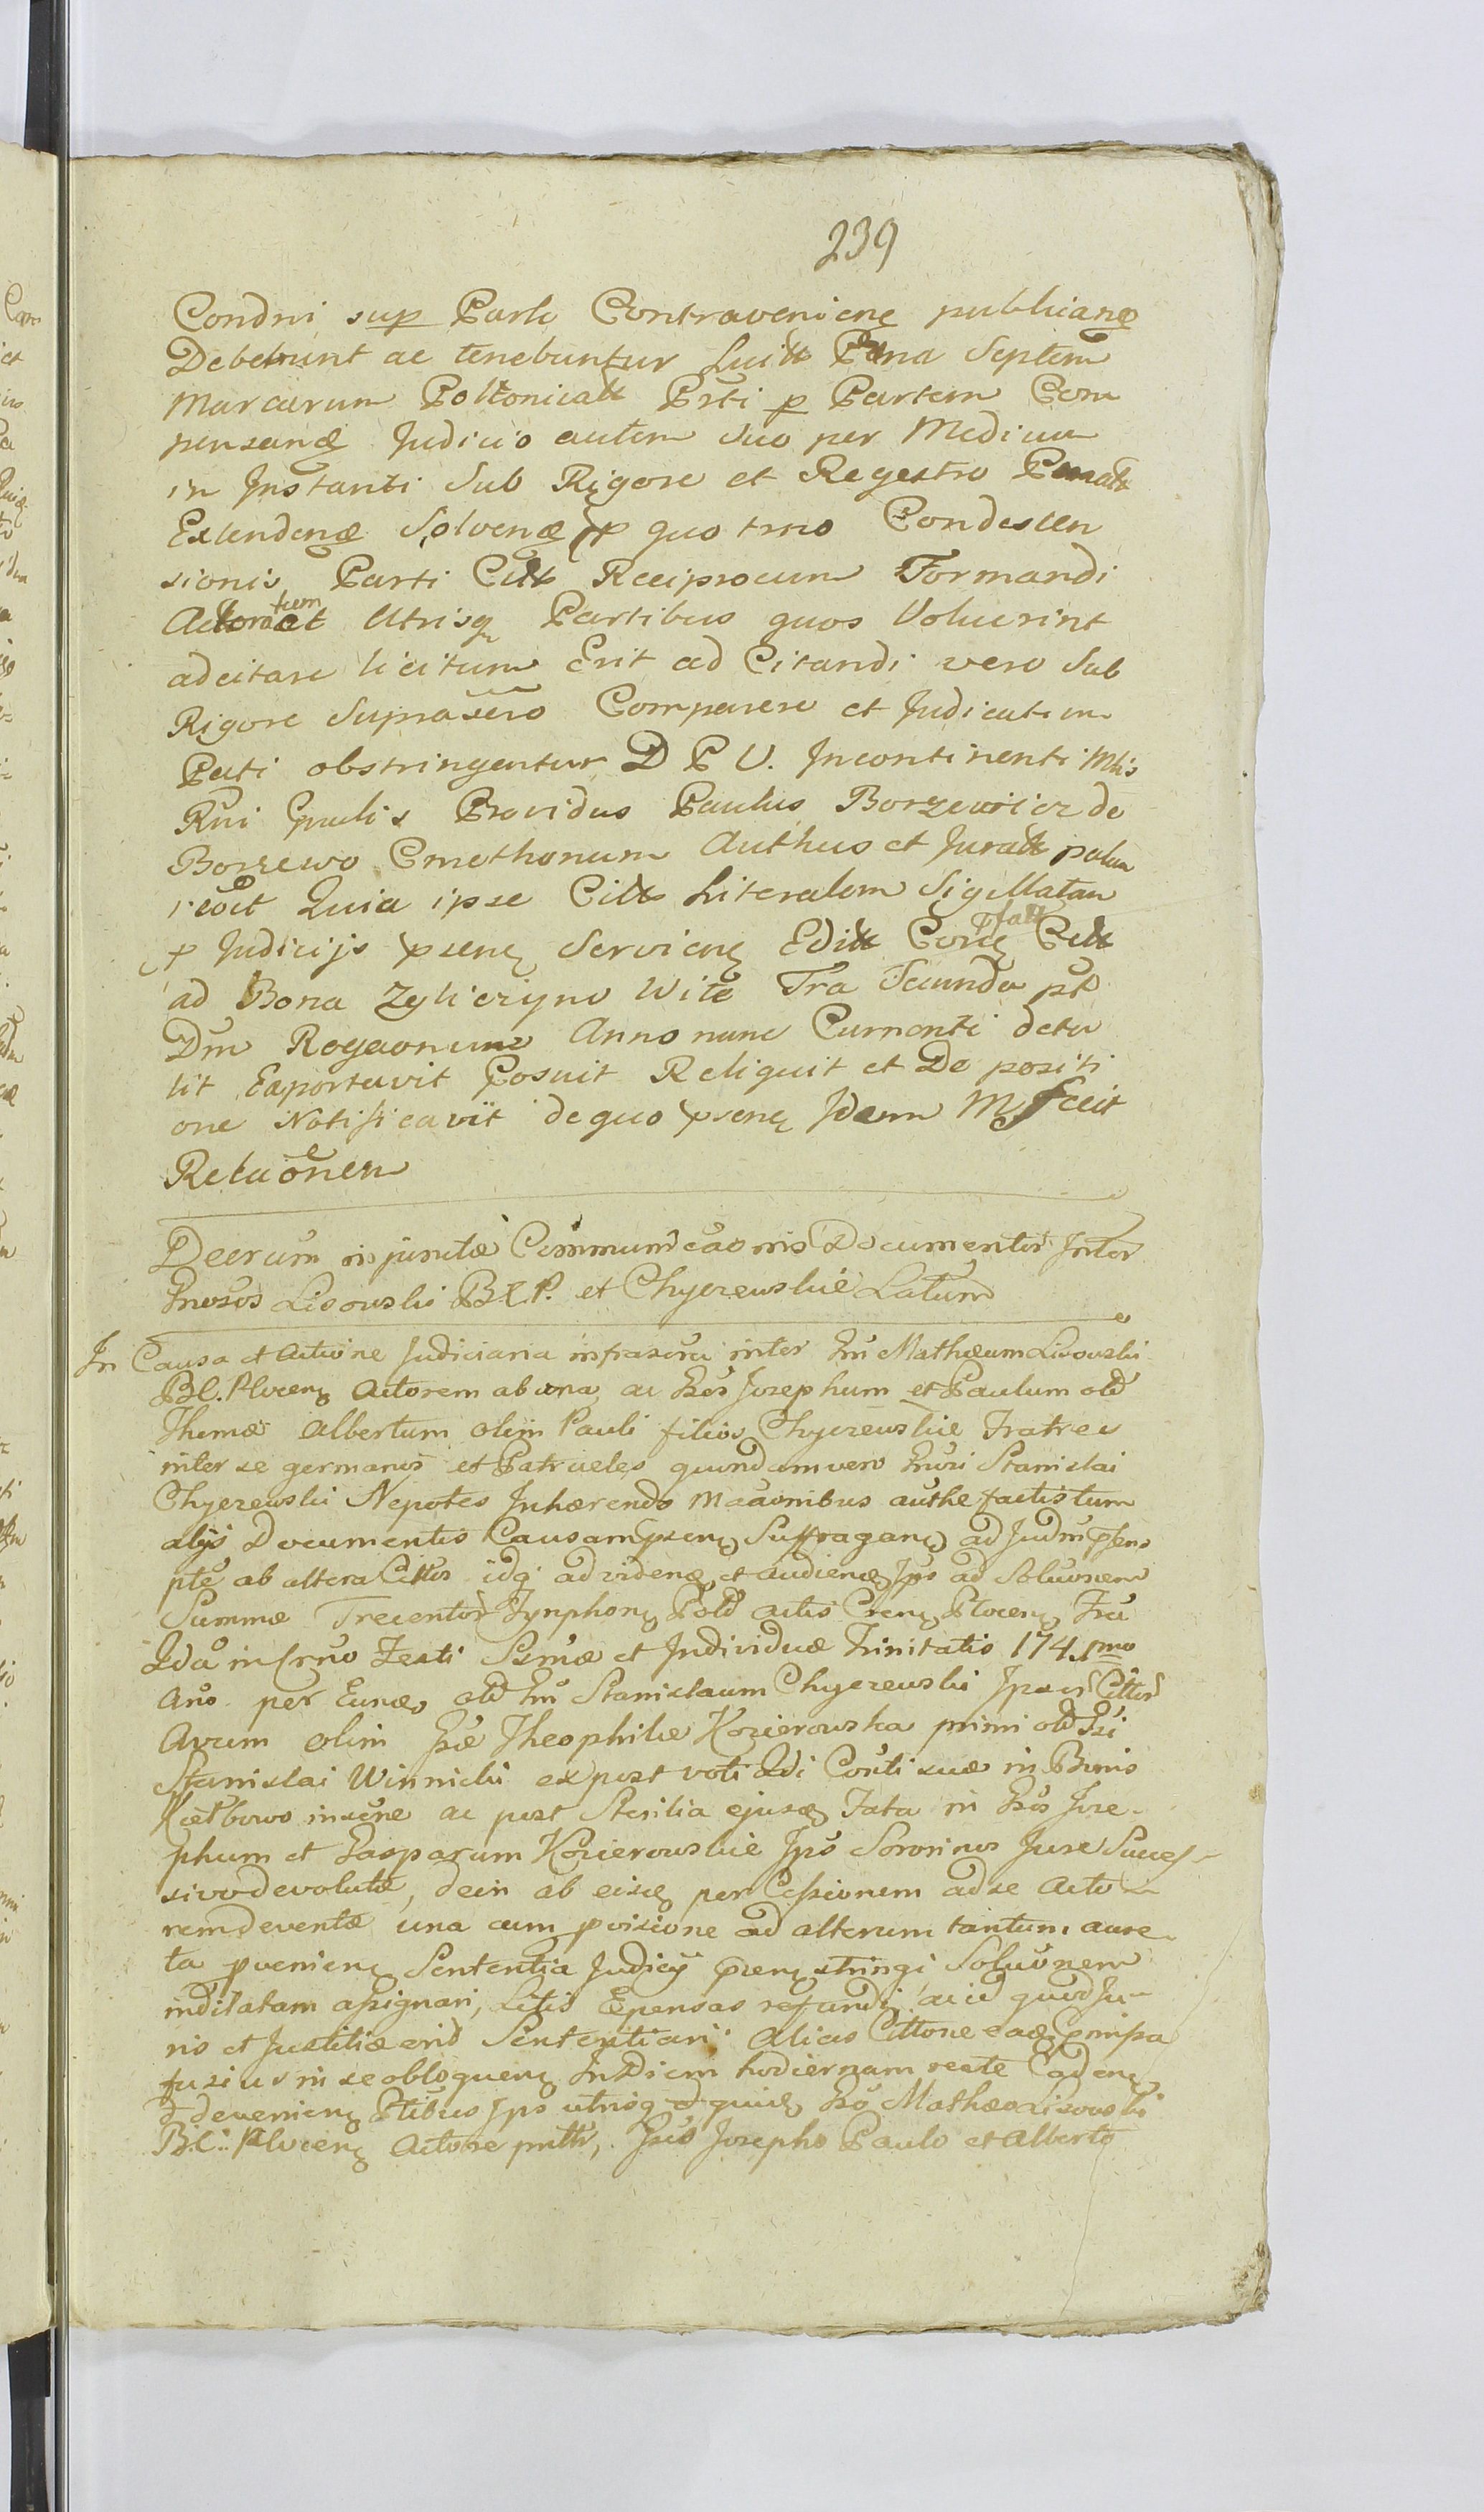 239
Condni sup Parte Contravenienę publicanę
Debebunt ac tenebuntur Luitt Pæna Septem
Marcarum Poltonicalt Pŕti p Partem Com
pensanę Judicio autem suo per Medium
in Instanti Sub Rigore et Regestro
Extendenę Solvenę p quo trno Condescen
sionis Parti Citt Reciprocum Formandi
Actoratum et Utrisq Partibus quos Voluerint
adcitare licitum Erit ad Citandi vero Sub
Rigore Suprascro Comparere et Judicatum
Pati obstringentur D P U. Incontinenti Mtis
Rni Gnalis Providus Paulus Borzewicz de
Borzewo Cmethonum Authus et Juratt palam
recit Quia ipse Citt Literalem Sigillatam
p Judicijs psenę Servienę Editt Citt
ad Bona Zglicziyno Wite Fra Secunda pt
Dm Rogaonum Anno nunc Currenti detu
lit Exportavit Posuit Reliquit et De positi
one Notificavit de quo psenę Idem M fecit
Relaonem
Decrum injunctæ Communicaonis Documentor Inter
Gnosos Lisowski B.C.P. et Chyczewskie Latum
In Causa et Actione Judiciaria infrascra inter Gn Mathæum Lisowski
B.C. Plocenę Actorem ab una, ac Gsos Josephum et Paulum old
Thomæ Albertum olim Pauli filios Chyczewskie Fratres
inter se germanos et Patrueles quondam vero Gnosi Stanislai
Chyczewski Nepotes Inhærendo Maconibus authe factis tum
alijs Documentis Causam psenę Suffraganę ad Judm psens
pte ab altera Cittos idq ad videnę, et audienę Ips ad Soluonem
Summæ Trecentor Tynphonę Pold actis Crenę Plocenę Fra
2da in Crno Festi Ssmæ et Individuæ Trinitatis 1741mo
Ano per Eunę old Gn Stanislaum Chyczewski Ipsor Cittor
Avum olim Gsæ Theophilæ Kozierowska primi old Gsi
Stanislai Winnicki expost voti 2di Conti suæ in Bonis
inscrne ac post Sterilia ejusę Fata in Gsos Jose-
phum et Gasparum Kozierowskie Ips Sororinos Jure Succes-
sivo devolutæ, dein ab eisę per Cessionem ad se Acto-
rem deventæ una cum pvisione ad alterum tantum aucre-
ta pvenienę Sententia Judicij psenę stringi Soluonem
indilatam assignari, Litis Expensas refundi ac id quod Ju-
ris et Justitiæ erit Sententiari. Alias Cittone eaę
fusius in se obloquenę In Diem hodiernam recte Cadenę
et devenienę Ptibus Ips utrisq quię Gso Mathæo Lisowski
B.C. Plocenę Actore pntbr, Gsis Josepho Paulo et Alberto